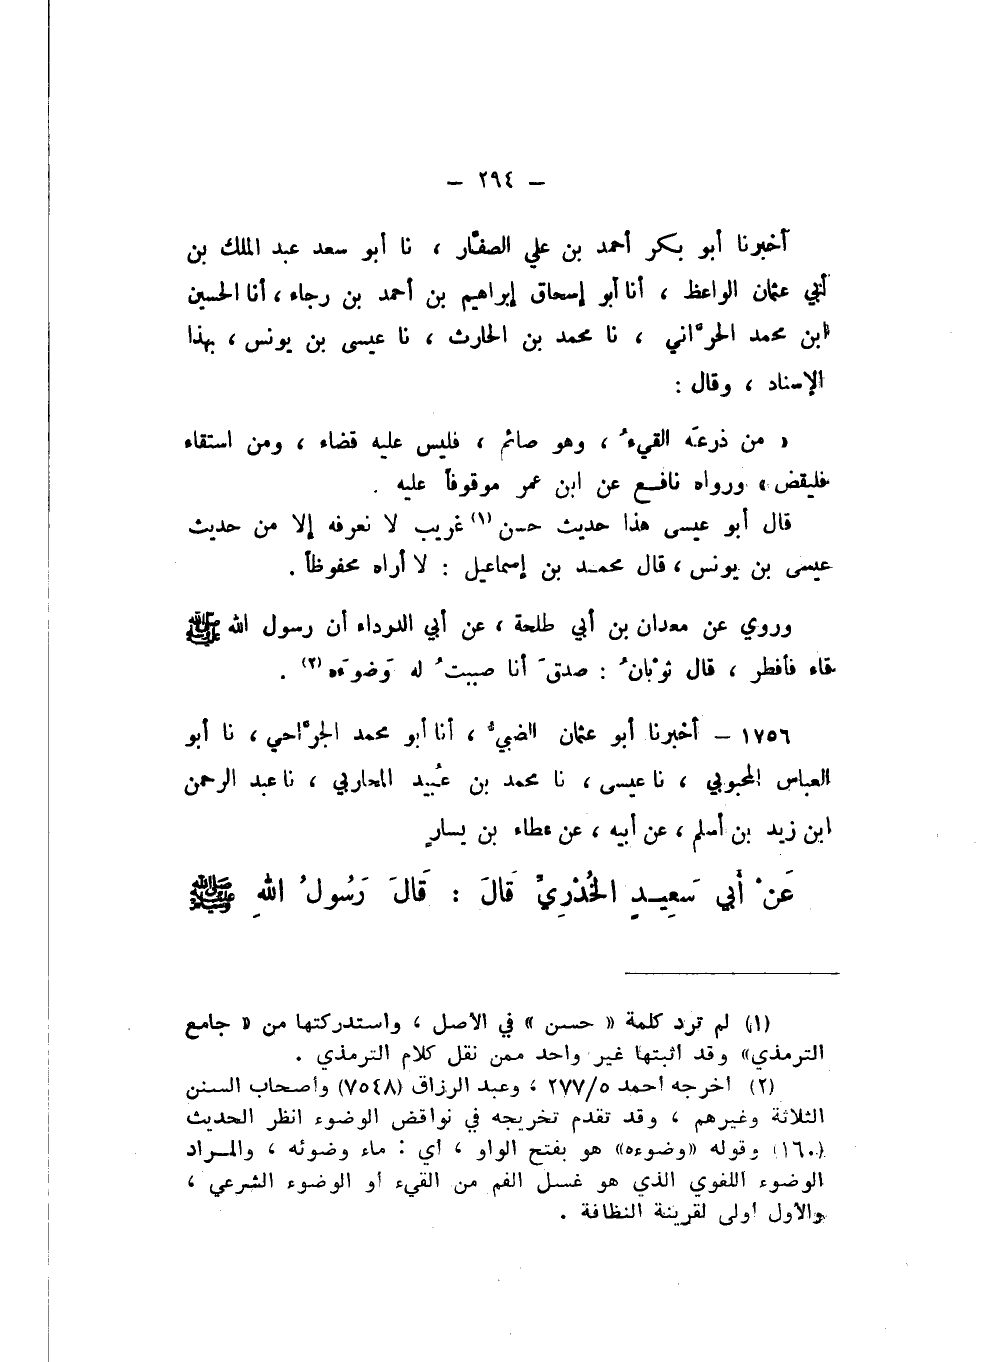 – ٢٩٤ –
أخبرنا أبو بكر أحمد بن علي الصفّار ، نا أبو سعد عبد الملك بن
أبي عثمان الواعظ ، أنا أبو إسحاق إبراهيم بن أحمد بن رجاء ، أنا الحسين
ابن محمد الحرّاني ، نا محمد بن الحارث ، نا عيسى بن يونس ، بهذا
الإسناد ، وقال :
« من ذرعَه القيءُ ، وهو صائم ، فليس عليه قضاء ، ومن استقاء
فليقض » ورواه نافـع عن ابن عمر موقوفاً عليه .
قال أبو عيسى هذا حديث حسن (١) غريب لا نعرفه إلا من حديث
عيسى بن يونس ، قال محمد بن إسماعيل : لا أراه محفوظاً .
وروي عن معدان بن أبي طلحة ، عن أبي الدرداء أن رسول الله ﷺ
قاء فأفطر ، قال ثوْبانُ : صدقَ أنا صببتُ له وَضوءَه (٢) .
١٧٥٦ – أخبرنا أبو عثمان الضبيُّ ، أنا أبو محمد الجرّاحي ، نا أبو
العباس المحبوبي ، نا عيسى ، نا محمد بن عُبيد المحاربي ، نا عبد الرحمن
ابن زيد بن أسلم ، عن أبيه ، عن عطاء بن يسارٍ
عَنْ أَبي سَعِيـدٍ الخُدْرِيِّ قَالَ : قَالَ رَسُولُ اللهِ ﷺ
(١) لم ترد كلمة « حسن » في الأصل ، واستدركتها من « جامع
الترمذي» وقد أثبتها غير واحد ممن نقل كلام الترمذي .
(٢) أخرجه أحمد ٢٧٧/٥ ، وعبد الرزاق (٧٥٤٨) وأصحاب السنن
الثلاثة وغيرهم ، وقد تقدم تخريجه في نواقض الوضوء انظر الحديث
(١٦٠) وقوله «وضوءه» هو بفتح الواو ، أي : ماء وضوئه ، والمـراد
الوضوء اللغوي الذي هو غسل الفم من القيء أو الوضوء الشرعي ،
والأول أولى لقرينة النظافة .